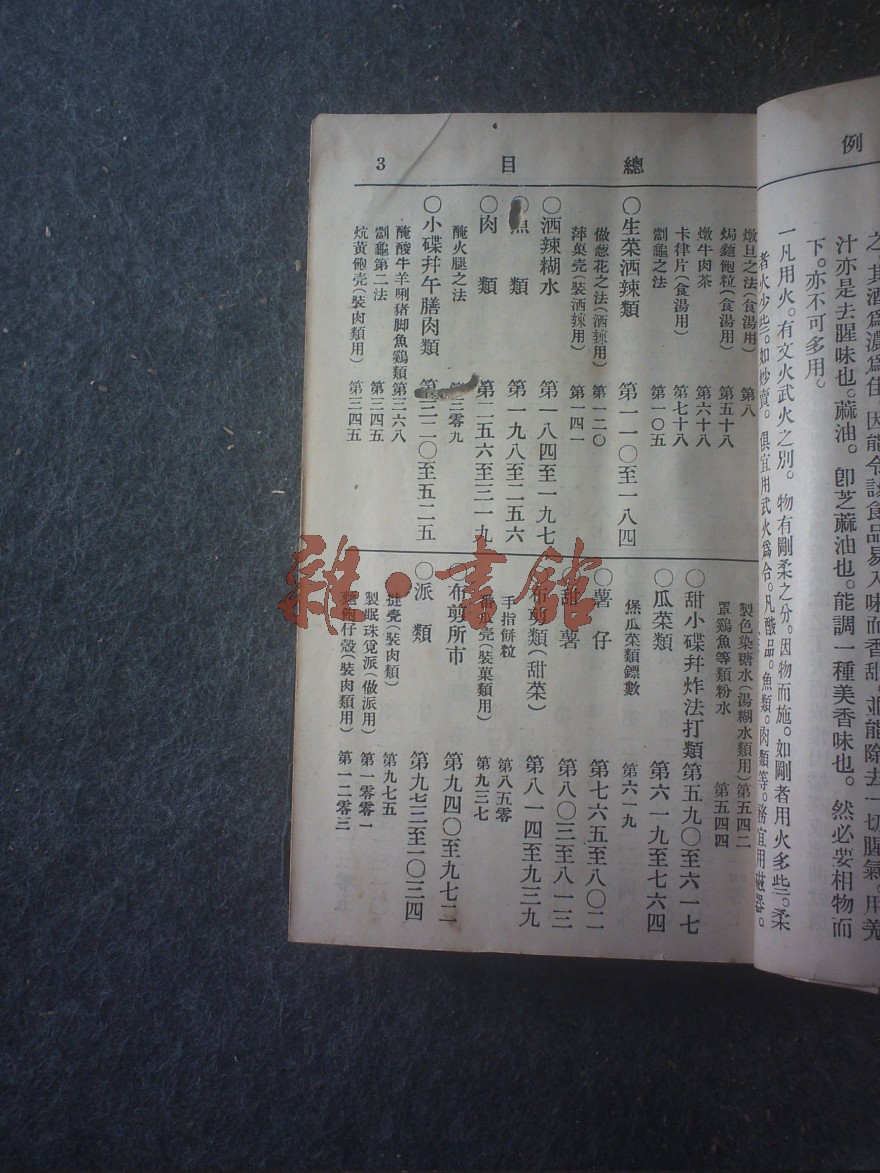 例
之其酒爲濃爲佳。因能令該食品易入味而香甜。並能除去一切腥氣。用羌
汁亦是去腥味也。蔴油。卽芝蔴油也。能調一種美香味也。然必要相物而
下。亦不可多用。
一凡用火。有文火武火之別。物有剛柔之分。因物而施。如剛者用火多些。柔
者火少些。如炒賣。俱宜用武火爲合。凡酸品。魚類。肉類等。務宜用磁器。
總目 3
燉旦之法(食湯用) 第八
焗麵飽粒(食湯用) 第五十八
燉牛肉茶 第六十八
卡律片(食湯用) 第七十八
劏龜之法 第一〇五
〇生菜洒辣類 第一一〇至一八四
做葱花之法(洒辣用) 第一二〇
萍菓壳(裝洒辣用) 第一四一
〇洒辣糊水 第一八四至一九七
魚類 第一九八至二五六
〇肉類 第二五六至三一九
醃火腿之法 第三零九
〇小碟幷午膳肉類 第三二〇至五二五
醃酸牛羊唎猪脚魚鷄類 第三六八
劏龜第二法 第三四五
炕黃飽壳(裝肉類用) 第三四五
製色染糖水(湯糊水類用) 第五四二
罩鷄魚等類粉水 第五四四
〇甜小碟幷炸法打類 第五九〇至六一七
〇瓜菜類 第六一九至七六四
煲瓜菜類鏢數 第六一九
〇薯仔 第七六五至八〇二
〇甜薯 第八〇三至八一三
〇布剪類(甜菜) 第八一四至九三九
手指餅粒 第八五零
瓜壳(裝菓類用) 第九三七
〇布剪所巿 第九四〇至九七二
〇派類 第九七三至一〇三四
撻壳(裝肉類) 第九七五
製眠珠覓派(做派用) 第一零零一
麵飽仔殼(裝肉類用) 第一二零三
雜·書館